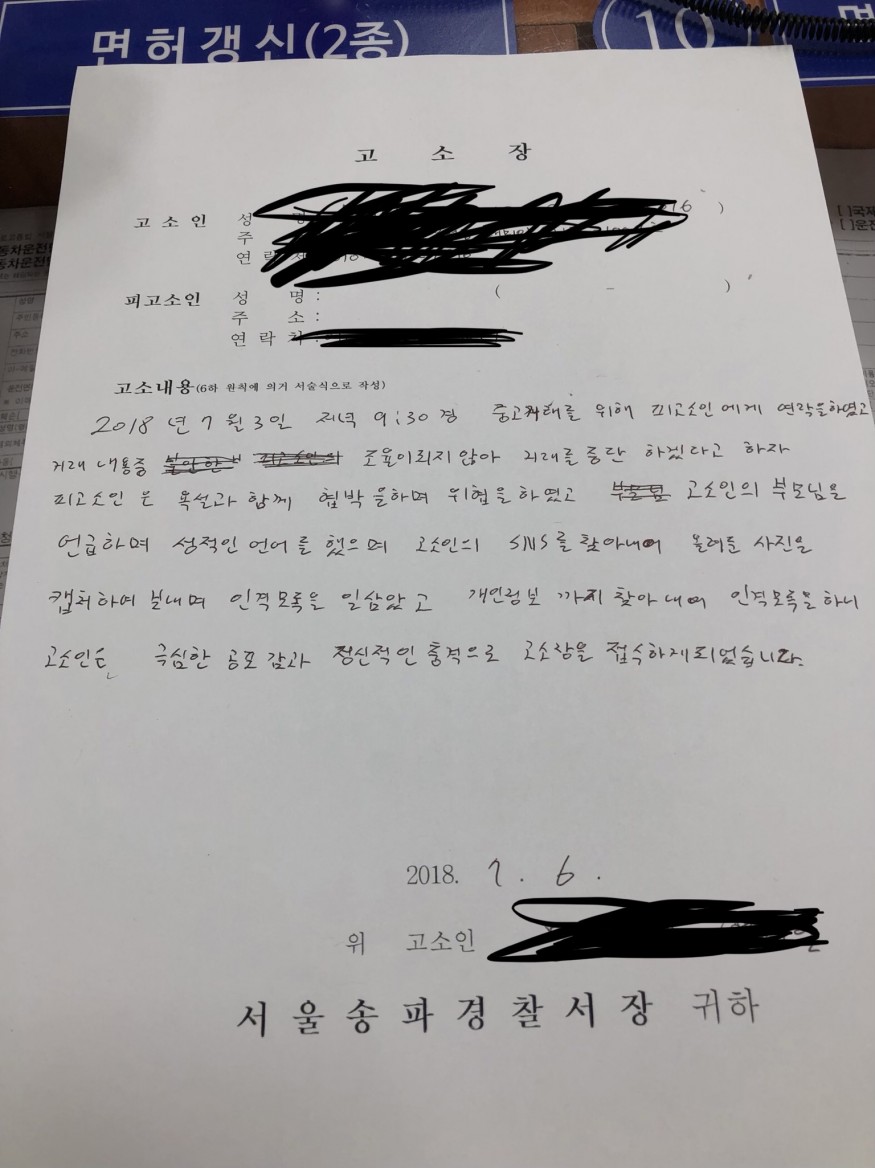 면허갱신(2종)
10
고 소 장
고소인 성
주
연 락
피고소인 성 명 : ( - )
주 소 :
연 락 처
고소내용(6하 원칙에 의거 서술식으로 작성)
2018 년 7 월 3일 저녁 9:30 경 중고거래를 위해 피고소인에게 연락을하였고
거래 내용중 조율이뤄지 않아 거래를 중단 하겠다고 하자
피고소인 은 욕설과 함께 협박을하며 위협을 하였고 고소인의 부모님을
언급하며 성적인 언어를 했으며 고소인의 SNS를 찾아내어 올려둔 사진을
캡쳐하여 보내며 인격모독을 일삼았고 개인정보 까지 찾아내어 인격모독을 하니
고소인은 극심한 공포감과 정신적인 충격으로 고소장을 접수하게되었습니다.
2018. 7. 6.
위 고소인
서울송파경찰서장 귀하